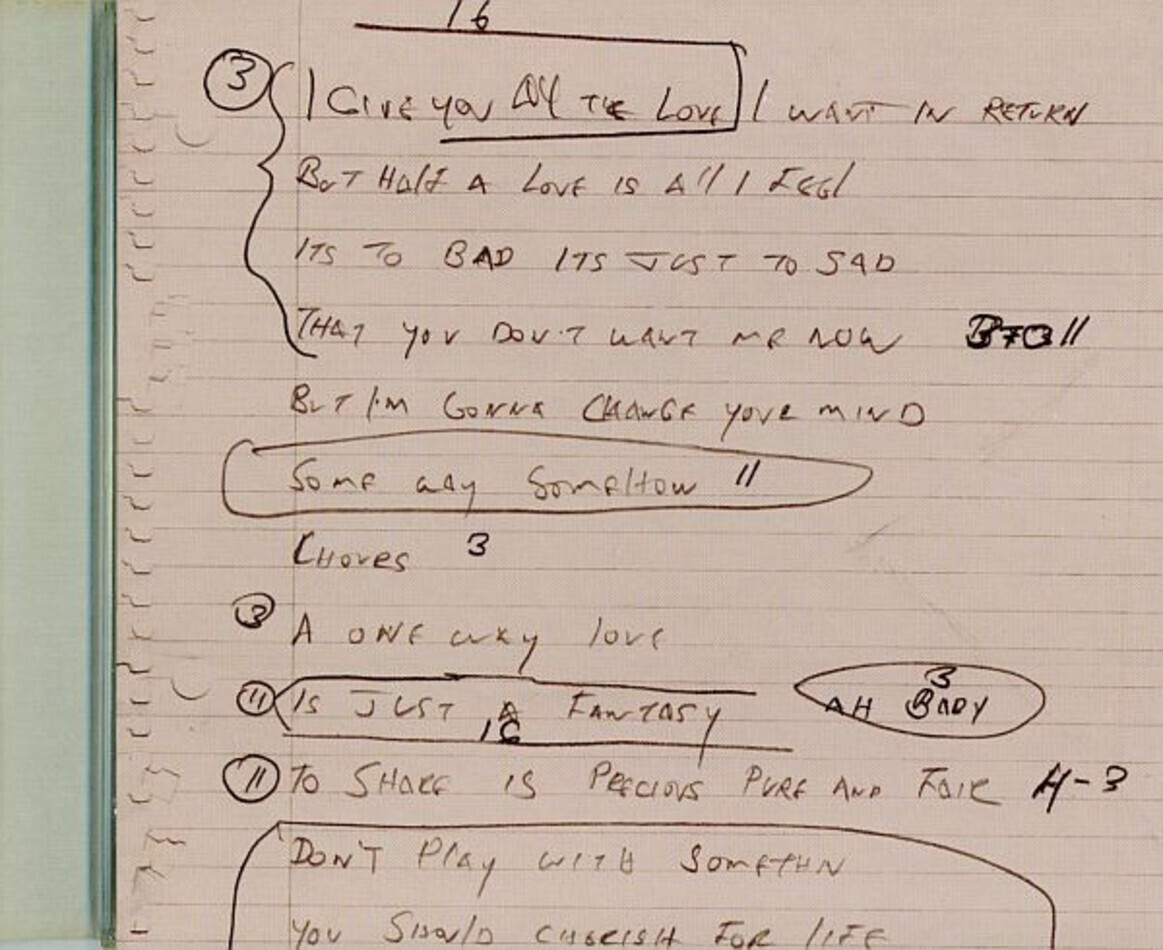 16
3 I GIVE YOU All THE LOVE I WANT IN RETURN
BUT HAlF A LOVE IS All I FEEl
ITS TO BAD ITS JUST TO SAD
THAT YOU DON'T WANT ME NOW
BUT I'M GONNA CHANGE YOUR MIND
SOME WAY SOMEHOW 11
CHORES 3
3 A ONE WAY lOVE
11 IS JUST A FANTASY 3
16 AH BABY
11 TO SHARE IS PRECIOUS PURE AND FAIR H-3
DON'T PlAY WITH SOMETHN
YOU SHOUlD CHERISH FOR lIFE